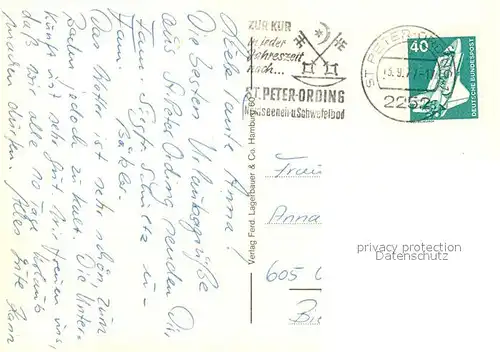 Liebe Tante Anna!
Die besten Urlaubsgrüße
aus St. Peter Ording senden Dir
Fam. Schultz u.
Fam. Bäcker
Das Wetter ist sehr schön, zum
Baden jedoch zu kalt. Die Unter-
kunft ist sehr gut. Wir freuen uns,
daß wir alle 10 Tage Urlaub
machen dürfen. Alles Gute
ZUR KUR
in jeder
Jahreszeit
nach...
ST. PETER-ORDING
Nordseeheil- u. Schwefelbad
ST PETER-ORDING
2252
40
DEUTSCHE BUNDESPOST
Verlag Ferd. Lagerbauer & Co. Hamburg
Anna
605
privacy protection
Datenschutz